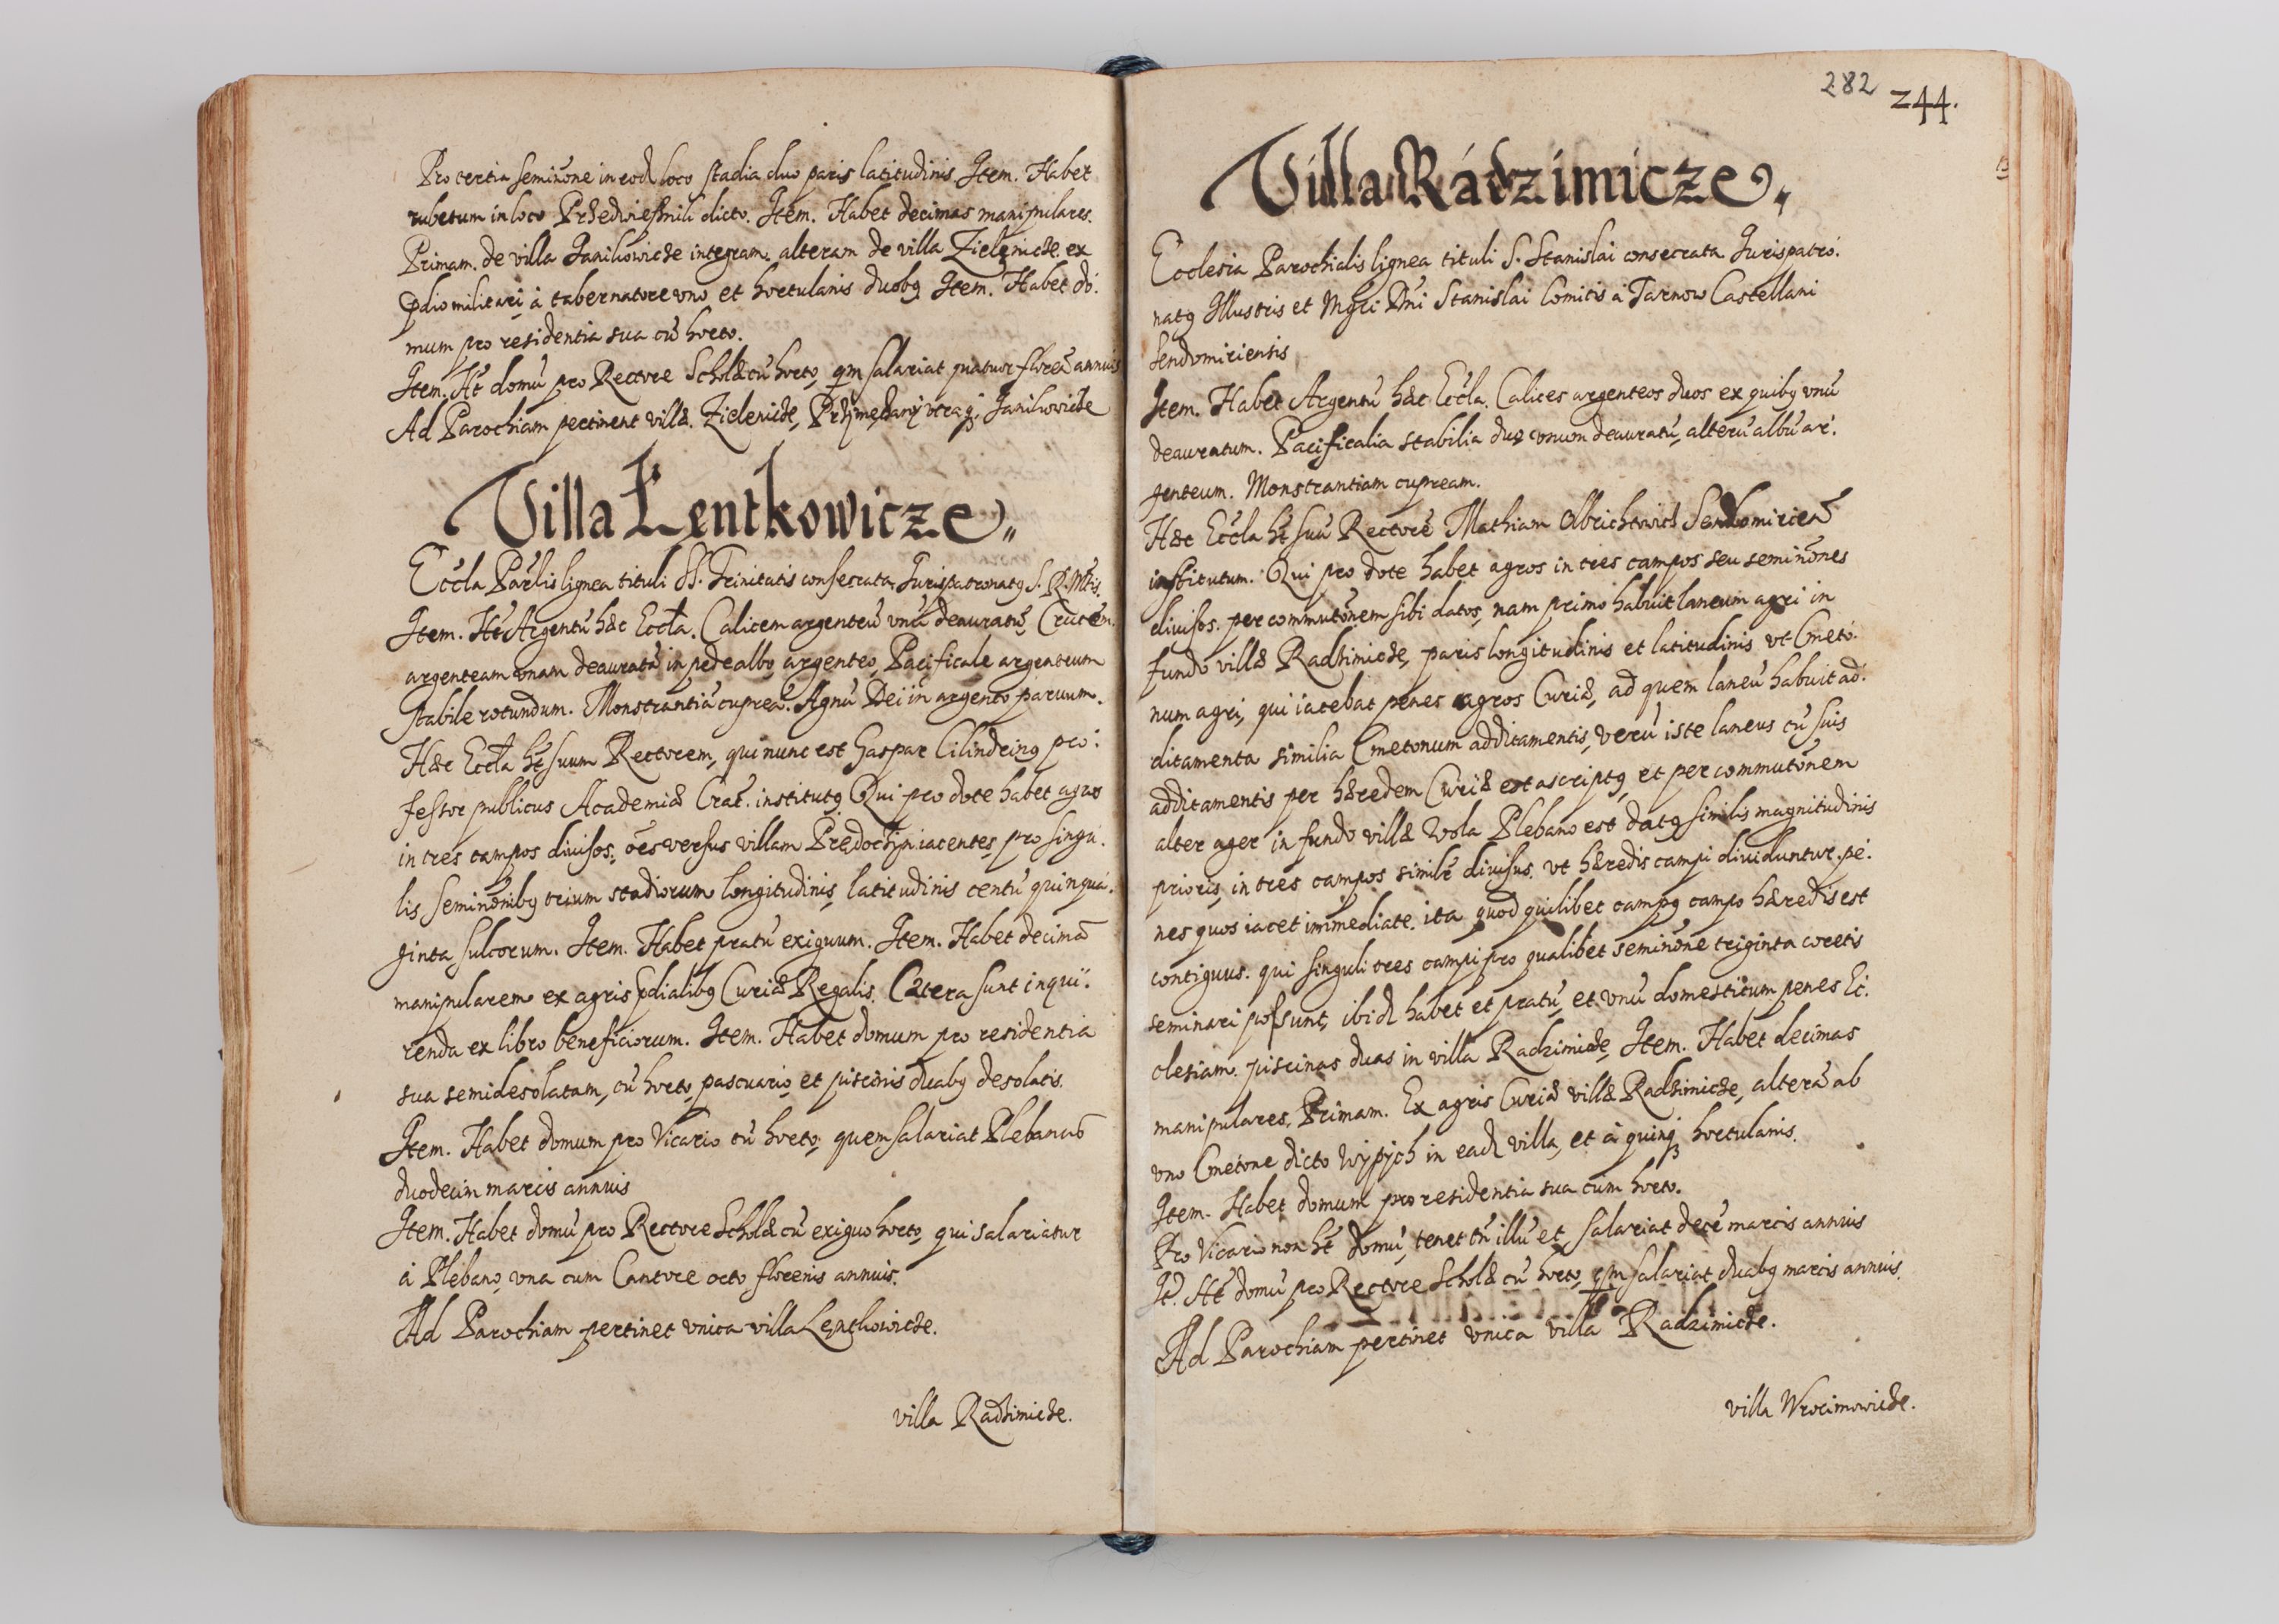 Pro tertia seminõne in eod loco stadia duo paris latitudinis Item. Habet
rubetum in loco Przedwiesnili dicto. Item. Habet decimas manipulares.
Primam. de villa Janikowicze integram. alteram de villa Zielenicze. ex
pdio militari, à tabernatore vno et hortulanis duobq Item. Habet do:
mum pro residentia sua cũ horto.
Item. Hẽt domũ pro Rectore Scholæ cũ horto, qm salariat quatuor floreñ annuis
Ad Parochiam pertinent villæ. Zielenicze, vtraqȝ Janikowicze
Villa Lentkowicze
Eccla Parlis lignea tituli SS. Trinitatis consecrata Jurispatronatq S. R. Mtis.
Item. Hẽt Argentũ hæc Eccla. Calicem argenteũ vnũ deauratũ, Crucem.
argenteam vnam deauratã in pede albo argenteo, Pacificale argenteum
stabile rotundum. Monstrantiã cupreã. Agnũ Dei in argento paruum.
Hæc Eccla hẽt suum Rectorem, qui nunc est Gaspar Cilindring pro:
fessor publicus Academiæ Crac. institutq Qui pro dote habet agros
in tres campos diuisos, oẽs versus villam iacentes, pro singu:
lis seminõnibq trium stadiorum longitudinis, latitudinis centũ quinqua:
ginta sulcorum. Item. Habet pratũ exiguum. Item. Habet decimã
manipularem ex agris pdialibq Curiæ Regalis. Cætera sunt inqui:
renda ex libro beneficiorum. Item. Habet domum pro residentia
sua semidesolatam, cũ horto, pascuario, et piscinis duabq desolatis.
Item. Habet domum pro Vicario cũ horto, quem salariat Plebanus
duodecim marcis annuis
Item. Habet domũ pro Rectore Scholæ cũ exiguo horto, qui salariatur
à Plebano, vna cum Cantore octo florenis annuis.
Ad Parochiam pertinet vnica villa Lentkowicze.
villa Radzimicze.
282 244.
Villa Rádzimicze
Ecclesia Parochialis lignea tituli S. Stanislai consecrata Jurispatro:
natq Illustris et Mgci Dñi Stanislai Comitis à Tarnow Castellani
Sendomiriensis
Item. Habet Argentũ hæc Eccla. Calices argenteos duos ex quibq vnũ
deauratum. Pacificalia stabilia duo vnum deauratũ, alterũ albũ ar:
genteum. Monstrantiam cupream.
Hæc Eccla hẽt suũ Rectorẽ Mathiam Olbrichtowicz Sendomirieñ
institutum. Qui pro dote habet agros in tres campos seu seminõnes
diuisos. per commutõnem sibi datos, nam primo habuit laneum agri in
fundo villæ Radzimicze, paris longitudinis et latitudinis vt Cmeto:
num agri, qui iacebat penes agros Curiæ, ad quem laneũ habuit ad:
ditamenta similia Cmetonum additamentis, verũ iste laneus cũ suis
additamentis per hæredem Curiæ est ascriptq, et per commutõnem
alter ager in fundo villæ Wola Plebano est datq similis magnitudinis
prioris, in tres campos similr diuisus. vt hæredis campi diuiduntur. pe:
nes quos iacet immediate. ita quod quilibet campq campo hæredis est
contiguus. qui singuli tres campi pro qualibet seminõne triginta coretis
seminari possunt, ibid habet et pratũ, et vnũ domesticum penes Ec:
clesiam. piscinas duas in villa Radzimicze, Item. Habet decimas
manipulares, Primam. Ex agris Curiæ villæ Radzimicze, alterã ab
vno Cmetone dicto Wypych in ead villa, et à quinqȝ hortulanis.
Item. Habet domum pro residentia sua cum horto.
Pro Vicario non hẽt domũ, tenet tñ illũ et salariat decẽ marcis annuis
It. Hẽt domũ pro Rectore Scholæ cũ horto, qm salariat duabq marcis annuis.
Ad Parochiam pertinet vnica villa Radzimicze.
villa Wrocimowicze.